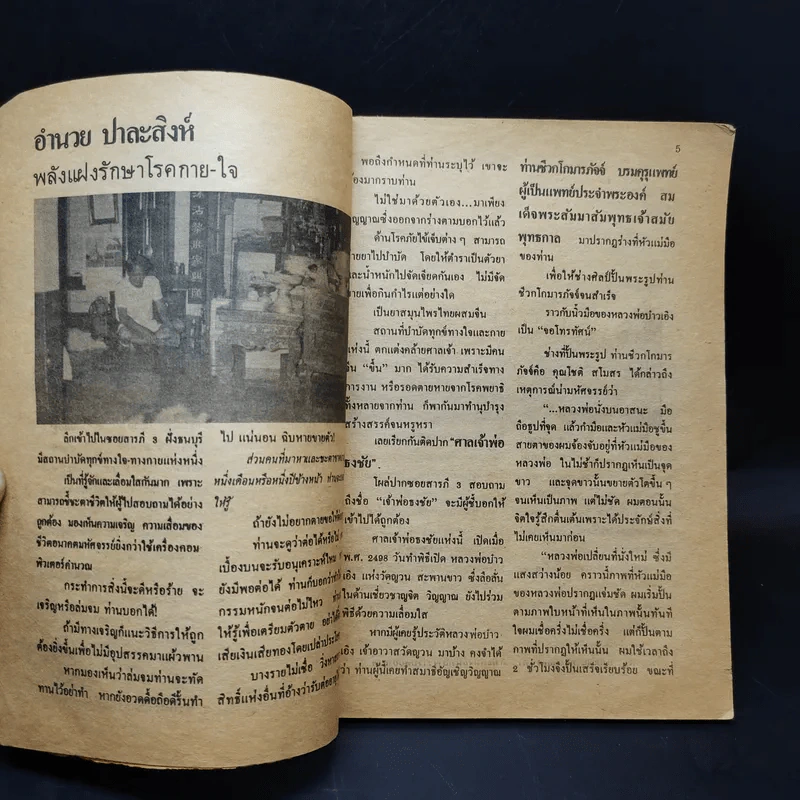 อำนวย ปาละสิงห์
พลังแฝงรักษาโรคกาย-ใจ
ลึกเข้าไปในซอยสารภี 3 ฝั่งธนบุรี
มีสถานบำบัดทุกข์ทางใจ-ทางกายแห่งหนึ่ง
ที่รู้จักและเลื่อมใสกันมาก เพราะ
สามารถชี้ชะตาชีวิตให้ผู้ไปสอบถามได้อย่าง
ถูกต้อง มองเห็นความเจริญ ความเสื่อมของ
ชีวิตอนาคตมหัศจรรย์ยิ่งกว่าใช้เครื่องคอม
พิวเตอร์คำนวณ
กระทำการสิ่งนี้จะดีหรือร้าย จะ
เจริญหรือล่มจม ท่านบอกได้!
ถ้ามีทางเจริญก็แนะวิธีการให้ถูก
ต้องยิ่งขึ้นเพื่อไม่มีอุปสรรคมาแผ้วพาน
หากมองเห็นว่าล่มจมท่านจะทัด
ทานไว้อย่าทำ หากยังอวดดื้อถือดีรั้นทำ
ไป แน่นอน ฉิบหายขายตัว!
ส่วนคนที่มาหาและชะตาขาด
หนึ่งเดือนหรือหนึ่งปีข้างหน้า ท่าน
ให้รู้
ถ้ายังไม่อยากตายขอให้
ท่านจะดูว่าต่อได้หรือไม่
เบื้องบนจะรับอนุเคราะห์ไหม
ยังมีพอต่อได้ ท่านก็บอกว่า
กรรมหนักจนต่อไม่ไหว ท่าน
ให้รู้เพื่อเตรียมตัวตาย
เสียเงินเสียทองโดยเปล่าประ
บางรายไม่เชื่อ วิ่ง
สิทธิ์แห่งอื่นที่อ้างว่ารับต่อ
พอถึงกำหนดที่ท่านระบุไว้ เขาจะ
องมากราบท่าน
ไม่ใช่มาด้วยตัวเอง...มาเพียง
ญญาณซึ่งออกจากร่างตามบอกไว้แล้ว
ด้านโรคภัยไข้เจ็บต่าง ๆ สามารถ
ายยาไปบำบัด โดยให้ตำราเป็นตัวยา
และน้ำหนักไปจัดเจียดกันเอง ไม่มีจัด
ายเพื่อกินกำไรแต่อย่างใด
เป็นยาสมุนไพรไทยผสมจีน
สถานที่บำบัดทุกข์ทางใจและกาย
แห่งนี้ ตกแต่งคล้ายศาลเจ้า เพราะมีคน
"ขึ้น" มาก ได้รับความสำเร็จทาง
การงาน หรือรอดตายหายจากโรคพยาธิ
ทั้งหลายจากท่าน ก็พากันมาทำนุบำรุง
สร้างสรรค์จนหรูหรา
เลยเรียกกันติดปาก "ศาลเจ้าพ่อ
ธงชัย".
โผล่ปากซอยสารภี 3 สอบถาม
ถึงชื่อ "เจ้าพ่อธงชัย" จะมีผู้ชี้บอกให้
เข้าไปได้ถูกต้อง
ศาลเจ้าพ่อธงชัยแห่งนี้ เปิดเมื่อ
พ.ศ. 2498 วันทำพิธีเปิด หลวงพ่อบ๋าว
เอิง แห่งวัดญวน สะพานขาว ซึ่งลือลั่น
ในด้านเชี่ยวชาญจิต วิญญาณ ยังไปร่วม
พิธีด้วยความเลื่อมใส
หากมีผู้เคยรู้ประวัติหลวงพ่อบ๋าว
เอิง เจ้าอาวาสวัดญวน มาบ้าง คงจำได้
ว่า ท่านผู้นี้เคยทำสมาธิอัญเชิญวิญญาณ
5
ท่านชีวกโกมารภัจจ์ บรมครูแพทย์
ผู้เป็นแพทย์ประจำพระองค์ สม
เด็จพระสัมมาสัมพุทธเจ้าสมัย
พุทธกาล มาปรากฏร่างที่หัวแม่มือ
ของท่าน
เพื่อให้ช่างศิลป์ปั้นพระรูปท่าน
ชีวกโกมารภัจจ์จนสำเร็จ
ราวกับนิ้วมือของหลวงพ่อบ๋าวเอิง
เป็น "จอโทรทัศน์"
ช่างที่ปั้นพระรูป ท่านชีวกโกมาร
ภัจจ์คือ คุณโชติ สโมสร ได้กล่าวถึง
เหตุการณ์น่ามหัศจรรย์ว่า
"...หลวงพ่อนั่งบนอาสนะ มือ
ถือธูปที่จุด แล้วกำมือและหัวแม่มือชูขึ้น
สายตาของผมจ้องจับอยู่ที่หัวแม่มือของ
หลวงพ่อ ในไม่ช้าก็ปรากฏเห็นเป็นจุด
ขาว และจุดขาวนั้นขยายตัวโตขึ้น ๆ
จนเห็นเป็นภาพ แต่ไม่ชัด ผมตอนนั้น
จิตใจรู้สึกตื่นเต้นเพราะได้ประจักษ์สิ่งที่
ไม่เคยเห็นมาก่อน
"หลวงพ่อเปลี่ยนที่นั่งใหม่ ซึ่งมี
แสงสว่างน้อย คราวนี้ภาพที่หัวแม่มือ
ของหลวงพ่อปรากฏแจ่มชัด ผมเริ่มปั้น
ตามภาพใบหน้าที่เห็นในภาพนั้นทันที
ใจผมเชื่อครึ่งไม่เชื่อครึ่ง แต่ก็ปั้นตาม
ภาพที่ปรากฏให้เห็นนั้น ผมใช้เวลาถึง
2 ชั่วโมงจึงปั้นเสร็จเรียบร้อย ขณะที่